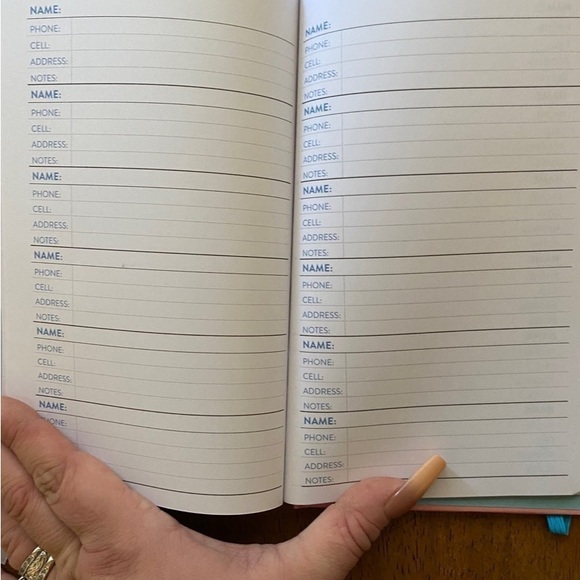 NAME:
PHONE:
CELL:
ADDRESS:
NOTES:
NAME:
PHONE:
CELL:
ADDRESS:
NOTES:
NAME:
PHONE:
CELL:
ADDRESS:
NOTES:
NAME:
PHONE:
CELL:
ADDRESS:
NOTES:
NAME:
PHONE:
CELL:
ADDRESS:
NOTES:
NAME:
NAME:
PHONE:
CELL:
ADDRESS:
NOTES:
NAME:
PHONE:
CELL:
ADDRESS:
NOTES:
NAME:
PHONE:
CELL:
ADDRESS:
NOTES:
NAME:
PHONE:
CELL:
ADDRESS:
NOTES:
NAME:
PHONE:
CELL:
ADDRESS:
NOTES:
NAME:
PHONE:
CELL:
ADDRESS:
NOTES: